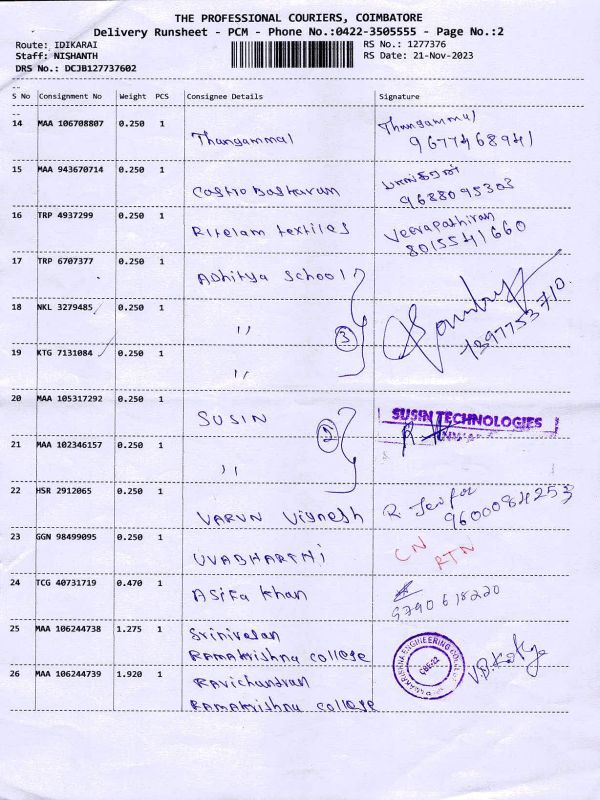 THE PROFESSIONAL COURIERS, COIMBATORE
Delivery Runsheet - PCM - Phone No.:0422-3505555 - Page No.:2
Route: IDIKARAI
RS No.: 1277376
Staff: NISHANTH
RS Date: 21-Nov-2023
DRS No.: DCJB127737602
S No Consignment No Weight PCS Consignee Details Signature
14 MAA 106708807 0.250 1 Thangammal Thangammal
9677468941
15 MAA 943670714 0.250 1 Castro Baskaran
9688095303
16 TRP 4937299 0.250 1 Ritelam textiles Veerapathiran
8015541660
17 TRP 6707377 0.250 1 Adhitya School
18 NKL 3279485 0.250 1 ,, 3
7397753710
19 KTG 7131084 0.250 1 ,,
20 MAA 105317292 0.250 1 SUSIN SUSIN TECHNOLOGIES
21 MAA 102346157 0.250 1 ,,
22 HSR 2912065 0.250 1 VARUN Vignesh
9600084253
23 GGN 98499095 0.250 1 UVABHARTHI CN
RTN
24 TCG 40731719 0.470 1 Asifa khan
9790618220
25 MAA 106244738 1.275 1 Srinivasan
Ramakrishna college
26 MAA 106244739 1.920 1 Ravichandran
Ramakrishna college